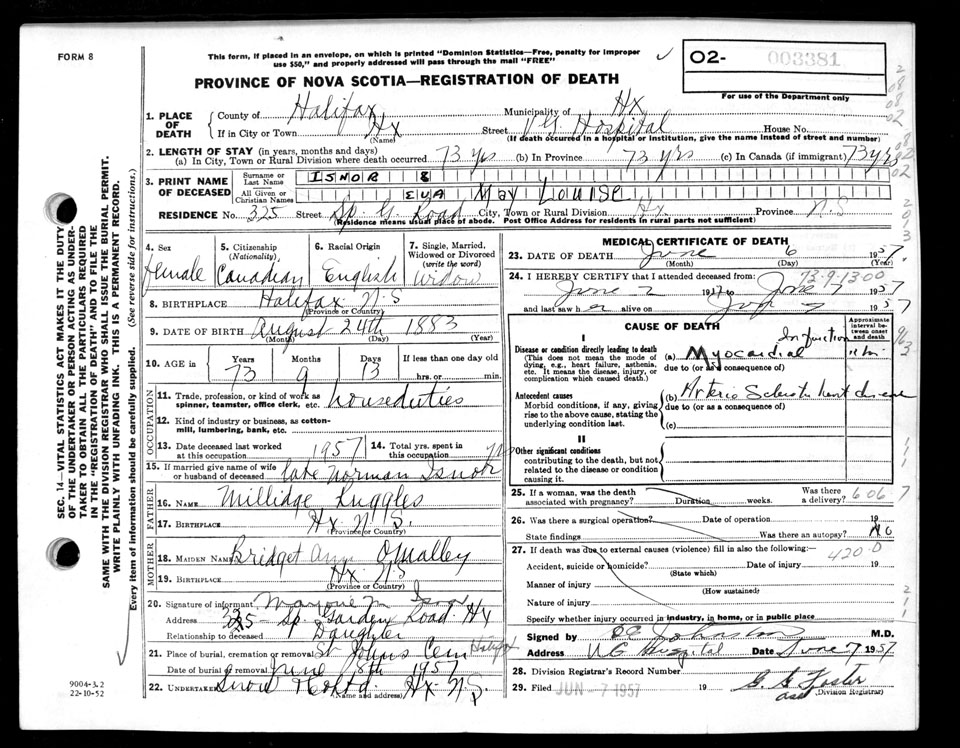 FORM 8
This form, if placed in an envelope, on which is printed "Dominion Statistics—Free, penalty for improper
use $50," and properly addressed will pass through the mail "FREE"
O2- 003381
For use of the Department only
PROVINCE OF NOVA SCOTIA—REGISTRATION OF DEATH
1. PLACE OF DEATH
County of Halifax Municipality of Hx
If in City or Town Hx Street V G Hospital House No.
(Name) (If death occurred in a hospital or institution, give the name instead of street and number)
2. LENGTH OF STAY (in years, months and days)
(a) In City, Town or Rural Division where death occurred 73 yrs (b) In Province 73 yrs (c) In Canada (if immigrant) 73 yrs
3. PRINT NAME OF DECEASED
Surname or Last Name ISNOR
All Given or Christian Names EVA May Louise
RESIDENCE No. 325 Street Sp. G. Road City, Town or Rural Division Hx Province N.S
(Residence means usual place of abode. Post Office Address for residents in rural parts not sufficient)
4. Sex female
5. Citizenship (Nationality) Canadian
6. Racial Origin English
7. Single, Married, Widowed or Divorced (write the word) Widow
8. BIRTHPLACE Halifax N.S
(Province or Country)
9. DATE OF BIRTH August 24th 1883
(Month) (Day) (Year)
10. AGE in Years 73 Months 9 Days 13 If less than one day old
hrs. or min.
OCCUPATION
11. Trade, profession, or kind of work as spinner, teamster, office clerk, etc. houseduties
12. Kind of industry or business, as cotton-mill, lumbering, bank, etc.
13. Date deceased last worked at this occupation 1957
14. Total yrs. spent in this occupation
15. If married give name of wife or husband of deceased late Norman Isnor
FATHER
16. NAME Millidge Ruggles
17. BIRTHPLACE Hx N.S.
(Province or Country)
MOTHER
18. MAIDEN NAME Bridget Ann O'Malley
19. BIRTHPLACE Hx N.S
(Province or Country)
20. Signature of informant Marjorie M Isnor
Address 325 Sp. Garden Road Hx
Relationship to deceased Daughter
21. Place of burial, cremation or removal St Johns Cem Halifax
Date of burial or removal June 8th 1957
22. UNDERTAKER Snow & Co Ltd Hx N.S.
(Name and address)
MEDICAL CERTIFICATE OF DEATH
23. DATE OF DEATH June 6 1957
(Month) (Day) (Year)
73-9-1300
24. I HEREBY CERTIFY that I attended deceased from:
June 2 1957 to June 7 1957
and last saw h alive on 1957
CAUSE OF DEATH
Approximate interval between onset and death
I
Disease or condition directly leading to death
(This does not mean the mode of dying, e.g., heart failure, asthenia, etc. It means the disease, injury, or complication which caused death.)
(a) Myocardial Infarction
due to (or as a consequence of)
Antecedent causes
Morbid conditions, if any, giving rise to the above cause, stating the underlying condition last.
(b) Arterio Sclerotic heart disease
due to (or as a consequence of)
(c)
II
Other significant conditions
contributing to the death, but not related to the disease or condition causing it.
25. If a woman, was the death associated with pregnancy? Duration weeks. Was there a delivery? 6067
26. Was there a surgical operation? Date of operation 19
State findings Was there an autopsy? No
27. If death was due to external causes (violence) fill in also the following:—
420-0
Accident, suicide or homicide? Date of injury 19
(State which)
Manner of injury
(How sustained)
Nature of injury
Specify whether injury occurred in industry, in home, or in public place
Signed by Johnston M.D.
Address V.G. Hospital Date June 7 1957
28. Division Registrar's Record Number
29. Filed JUN -7 1957 19 G. G. Foster
(Division Registrar)
SEC. 14—VITAL STATISTICS ACT MAKES IT THE DUTY
OF THE UNDERTAKER OR PERSON ACTING AS UNDER-
TAKER TO OBTAIN ALL THE PARTICULARS REQUIRED
IN THE "REGISTRATION OF DEATH" AND TO FILE THE
SAME WITH THE DIVISION REGISTRAR WHO SHALL ISSUE THE BURIAL PERMIT.
WRITE PLAINLY WITH UNFADING INK. THIS IS A PERMANENT RECORD.
Every item of information should be carefully supplied. (See reverse side for instructions.)
9004-3.2
22-10-52